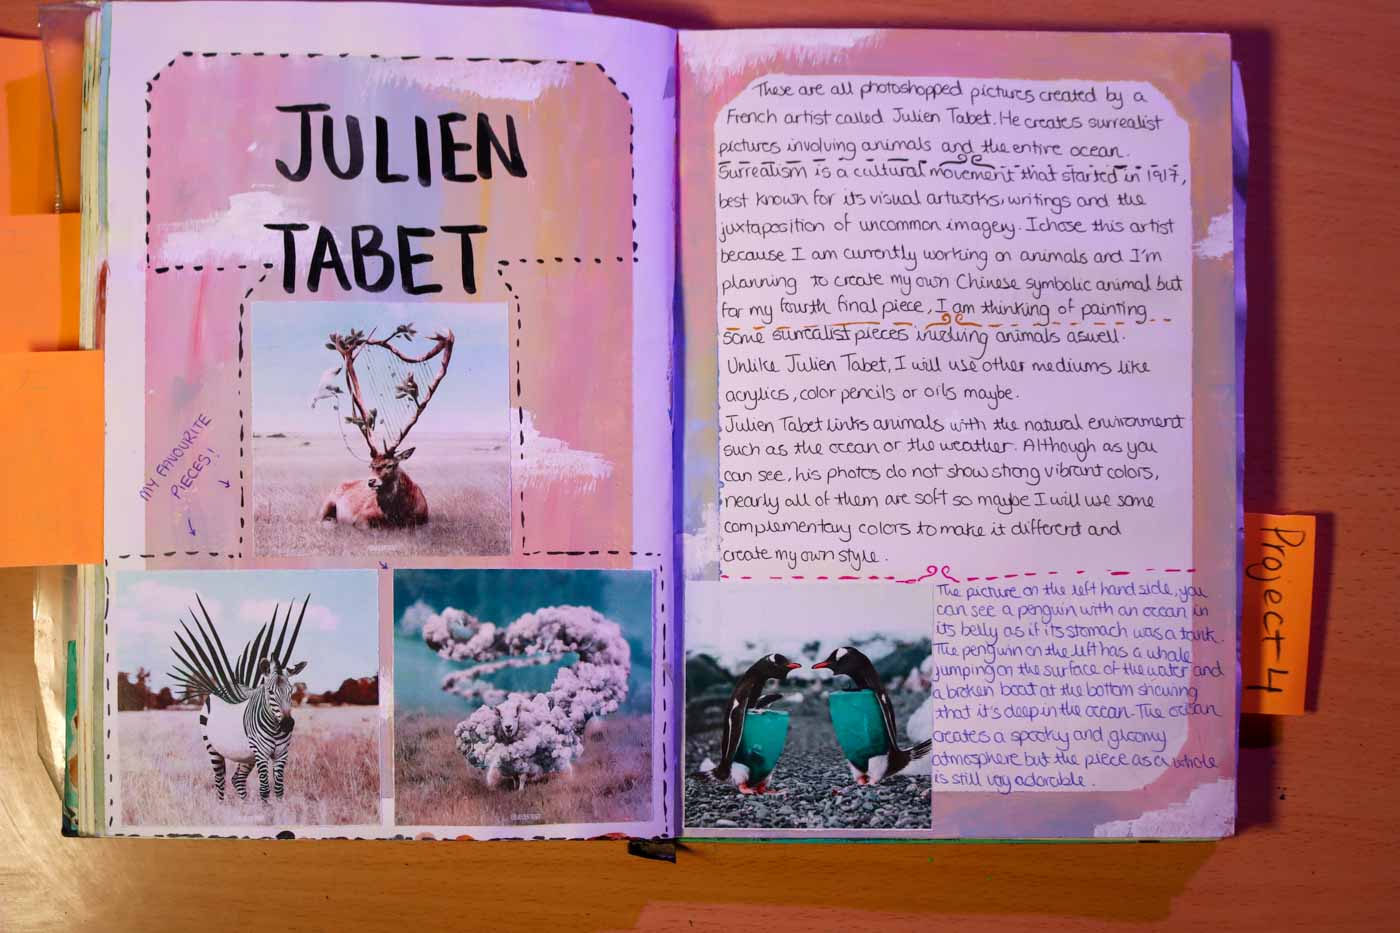 JULIEN
TABET
MY FAVOURITE
PIECES!
These are all photoshopped pictures created by a
French artist called Julien Tabet. He creates surrealist
pictures involving animals and the entire ocean.
Surrealism is a cultural movement that started in 1917,
best known for its visual artworks, writings and the
juxtaposition of uncommon imagery. I chose this artist
because I am currently working on animals and I'm
planning to create my own Chinese symbolic animal but
for my fourth final piece, I am thinking of painting
some surrealist pieces involving animals aswell.
Unlike Julien Tabet, I will use other mediums like
acrylics, color pencils or oils maybe.
Julien Tabet links animals with the natural environment
such as the ocean or the weather. Although as you
can see, his photos do not show strong vibrant colors,
nearly all of them are soft so maybe I will use some
complementary colors to make it different and
create my own style.
The picture on the left hand side, you
can see a penguin with an ocean in
its belly as if its stomach was a tank.
The penguin on the left has a whale
jumping on the surface of the water and
a broken boat at the bottom showing
that it's deep in the ocean. The ocean
creates a spooky and gloomy
atmosphere but the piece as a whole
is still very adorable.
Project 4